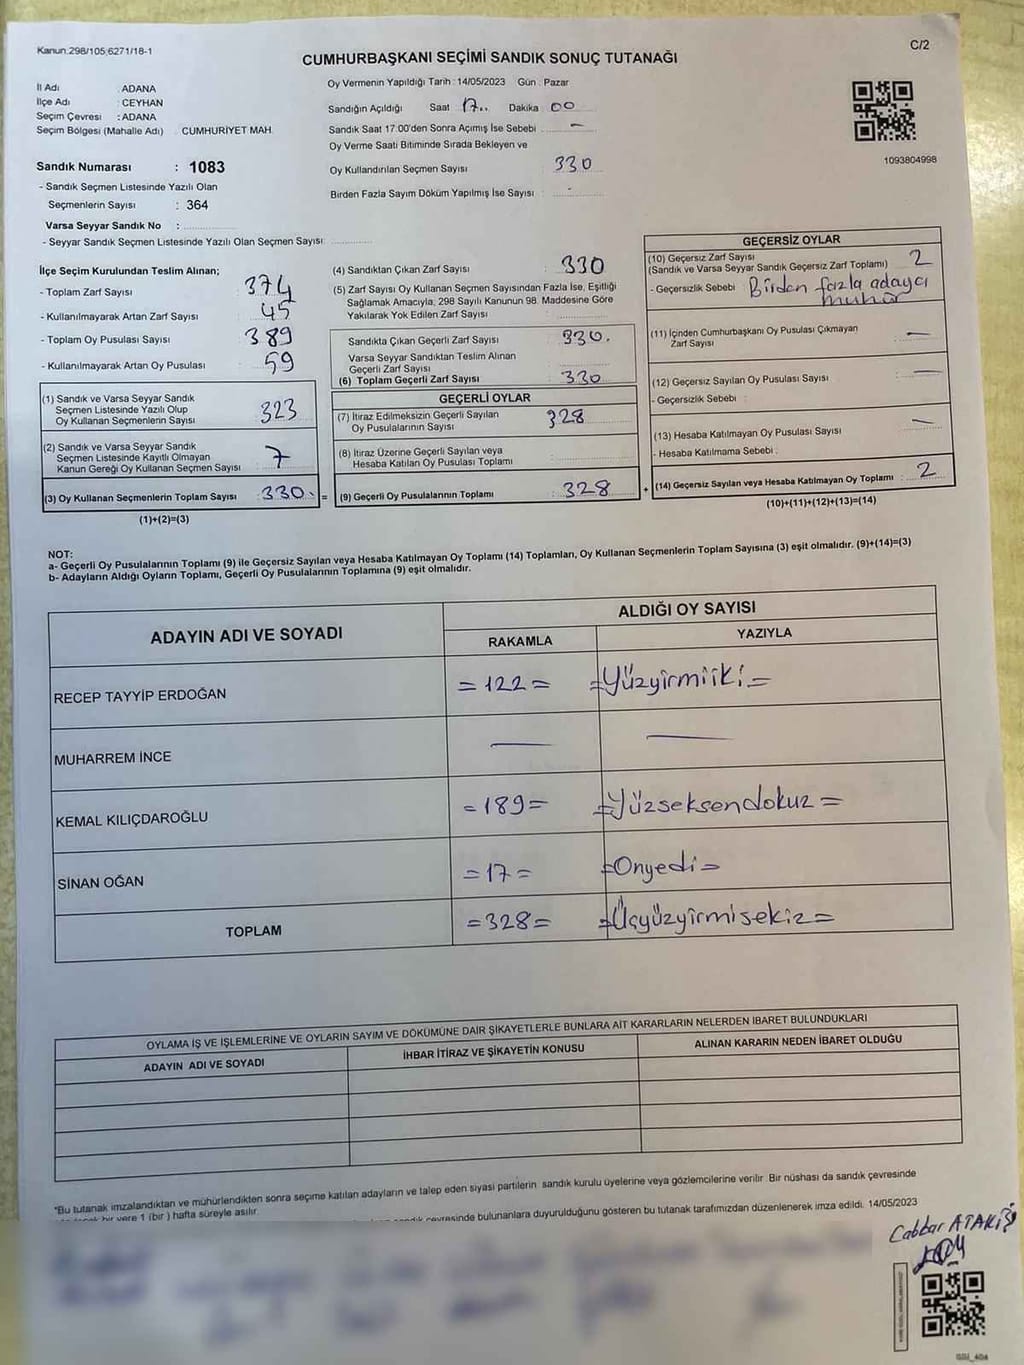 Kanun:298/105,6271/18-1
C/2
CUMHURBAŞKANI SEÇİMİ SANDIK SONUÇ TUTANAĞI
İl Adı : ADANA
İlçe Adı : CEYHAN
Seçim Çevresi : ADANA
Seçim Bölgesi (Mahalle Adı) CUMHURİYET MAH.
Sandık Numarası : 1083
- Sandık Seçmen Listesinde Yazılı Olan
Seçmenlerin Sayısı : 364
Varsa Seyyar Sandık No :
- Seyyar Sandık Seçmen Listesinde Yazılı Olan Seçmen Sayısı:
Oy Vermenin Yapıldığı Tarih : 14/05/2023 Gün : Pazar
Sandığın Açıldığı Saat 17.. Dakika 00
Sandık Saat 17:00'den Sonra Açımış İse Sebebi : -
Oy Verme Saati Bitiminde Sırada Bekleyen ve
Oy Kullandırılan Seçmen Sayısı 330
Birden Fazla Sayım Döküm Yapılmış İse Sayısı : -
1093804998
İlçe Seçim Kurulundan Teslim Alınan;
- Toplam Zarf Sayısı : 374
- Kullanılmayarak Artan Zarf Sayısı : 45
- Toplam Oy Pusulası Sayısı : 389
- Kullanılmayarak Artan Oy Pusulası : 59
(1) Sandık ve Varsa Seyyar Sandık
Seçmen Listesinde Yazılı Olup
Oy Kullanan Seçmenlerin Sayısı 323
(2) Sandık ve Varsa Seyyar Sandık
Seçmen Listesinde Kayıtlı Olmayan
Kanun Gereği Oy Kullanan Seçmen Sayısı 7
(3) Oy Kullanan Seçmenlerin Toplam Sayısı : 330. =
(1)+(2)=(3)
(4) Sandıktan Çıkan Zarf Sayısı : 330
(5) Zarf Sayısı Oy Kullanan Seçmen Sayısından Fazla İse, Eşitliği
Sağlamak Amacıyla, 298 Sayılı Kanunun 98. Maddesine Göre
Yakılarak Yok Edilen Zarf Sayısı :
Sandıkta Çıkan Geçerli Zarf Sayısı : 330.
Varsa Seyyar Sandıktan Teslim Alınan
Geçerli Zarf Sayısı
(6) Toplam Geçerli Zarf Sayısı : 330
GEÇERLİ OYLAR
(7) İtiraz Edilmeksizin Geçerli Sayılan
Oy Pusulalarının Sayısı 328
(8) İtiraz Üzerine Geçerli Sayılan veya
Hesaba Katılan Oy Pusulası Toplamı
(9) Geçerli Oy Pusulalarının Toplamı : 328 +
GEÇERSİZ OYLAR
(10) Geçersiz Zarf Sayısı
(Sandık ve Varsa Seyyar Sandık Geçersiz Zarf Toplamı) 2
- Geçersizlik Sebebi : Birden fazla adayca
mühür
(11) İçinden Cumhurbaşkanı Oy Pusulası Çıkmayan
Zarf Sayısı —
(12) Geçersiz Sayılan Oy Pusulası Sayısı : —
- Geçersizlik Sebebi :
(13) Hesaba Katılmayan Oy Pusulası Sayısı —
- Hesaba Katılmama Sebebi :
(14) Geçersiz Sayılan veya Hesaba Katılmayan Oy Toplamı : 2
(10)+(11)+(12)+(13)=(14)
NOT:
a- Geçerli Oy Pusulalarının Toplamı (9) ile Geçersiz Sayılan veya Hesaba Katılmayan Oy Toplamı (14) Toplamları, Oy Kullanan Seçmenlerin Toplam Sayısına (3) eşit olmalıdır. (9)+(14)=(3)
b- Adayların Aldığı Oyların Toplamı, Geçerli Oy Pusulalarının Toplamına (9) eşit olmalıdır.
ADAYIN ADI VE SOYADI
ALDIĞI OY SAYISI
RAKAMLA YAZIYLA
RECEP TAYYİP ERDOĞAN =122= =Yüzyirmiiki=
MUHARREM İNCE — —
KEMAL KILIÇDAROĞLU =189= =Yüzseksendokuz=
SİNAN OĞAN =17= =Onyedi=
TOPLAM =328= =Üçyüzyirmisekiz=
OYLAMA İŞ VE İŞLEMLERİNE VE OYLARIN SAYIM VE DÖKÜMÜNE DAİR ŞİKAYETLERLE BUNLARA AİT KARARLARIN NELERDEN İBARET BULUNDUKLARI
ADAYIN ADI VE SOYADI İHBAR İTİRAZ VE ŞİKAYETİN KONUSU ALINAN KARARIN NEDEN İBARET OLDUĞU
*Bu tutanak imzalandıktan ve mühürlendikten sonra seçime katılan adayların ve talep eden siyasi partilerin sandık kurulu üyelerine veya gözlemcilerine verilir. Bir nüshası da sandık çevresinde
bir yere 1 (bir) hafta süreyle asılır.
sandık çevresinde bulunanlara duyurulduğunu gösteren bu tutanak tarafımızdan düzenlenerek imza edildi. 14/05/2023
Cabbar ATAKİŞİ